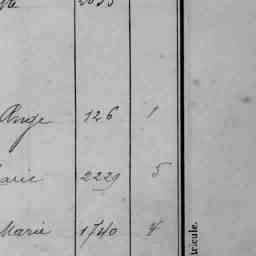 Ange 126 1
arie 2229 5
Marie 1740 4
tricule.